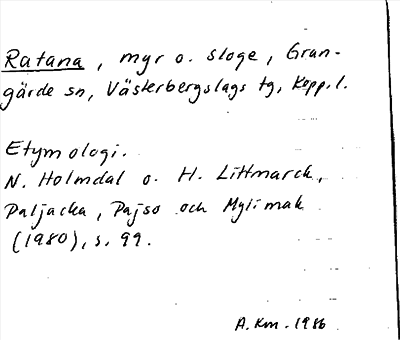 Ratana, myr o. sloge, Gran-
gärde sn, Västerbergslags tg, Kopp.l.
Etymologi.
N. Holmdal o. H. Littmarck,
Paljacka, Pajso och Mylimak
(1980), s. 99.
A.Km. 1986